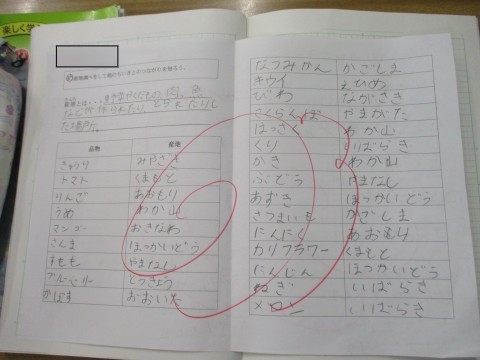 楽しく学
産地とは・・・野菜やくだもの、肉、魚
などが作られたり とられたりし
た場所。
品物 産地
きゅうり みやざき
トマト くまもと
りんご あおもり
うめ わか山
マンゴー おきなわ
さんま ほっかいどう
すもも やまなし
ブルーベリー とうきょう
かぼす おおいた
なつみかん かごしま
キウイ えひめ
びわ ながさき
さくらんぼ やまがた
はっさく わか山
くり いばらき
かき わか山
ぶどう やまなし
あずき ほっかいどう
さつまいも かごしま
にんにく あおもり
カリフラワー くまもと
にんじん ほっかいどう
ねぎ いばらき
メロン いばらき